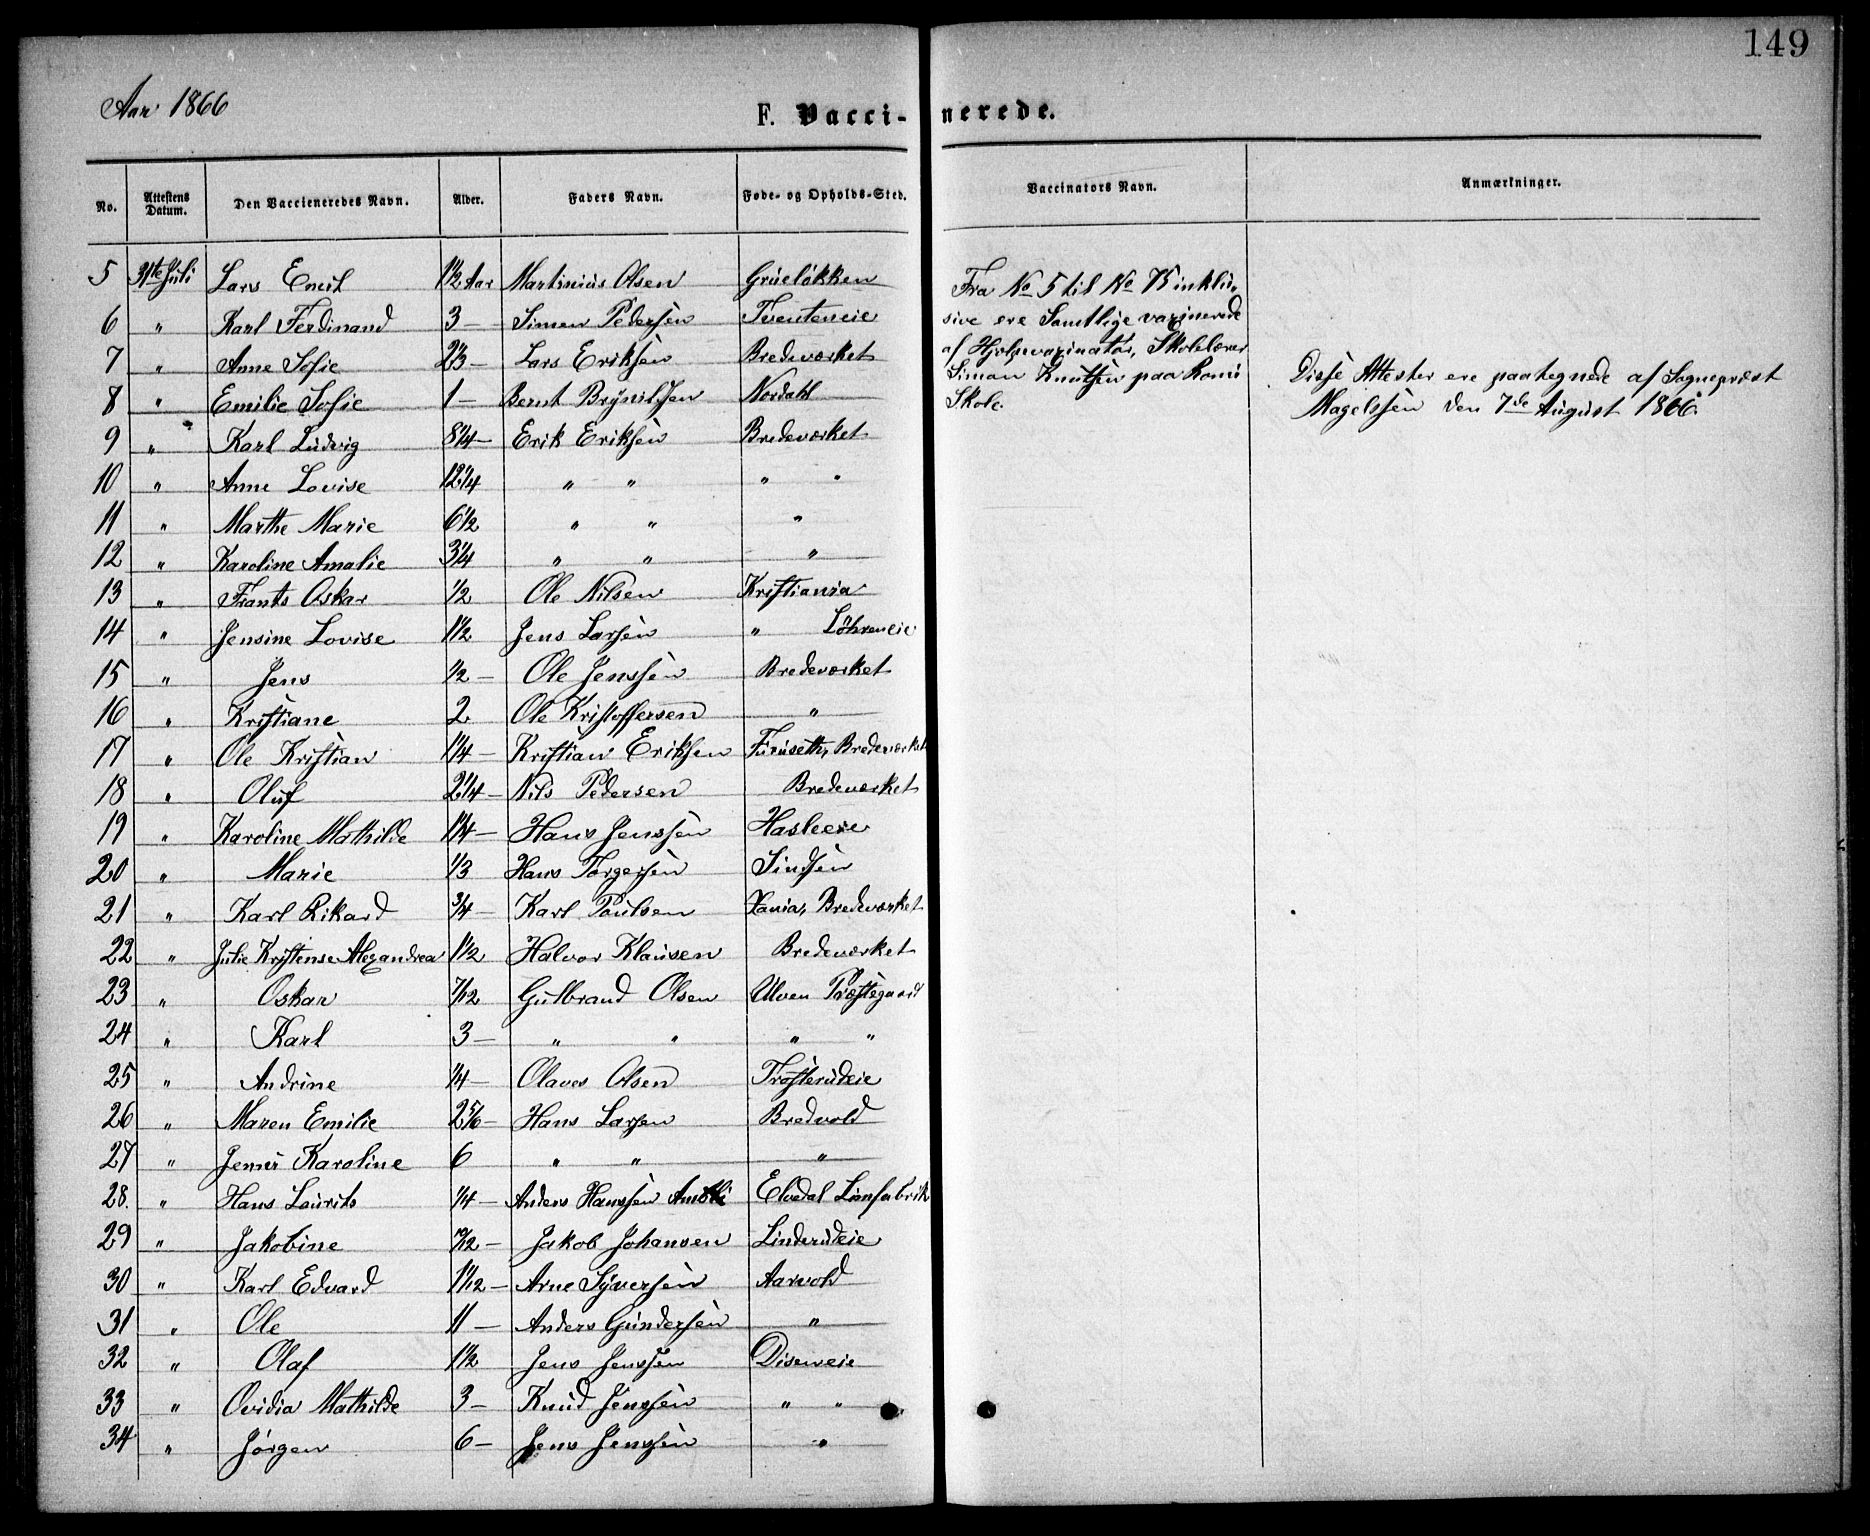 149
Aar 1866
F. Vacci- nerede.
No. Attestens Datum. Den Vaccineredes Navn. Alder. Faders Navn. Føde- og Opholds-Sted. Vaccinators Navn. Anmærkninger.
5 31te Juli Lars Emil 1½ Aar Martinius Olsen Grueløkken
6 " Karl Ferdinand 3 — Simen Pedersen Tventeneie
7 " Anne Sofie 2⅓ — Lars Eriksen Bredeværket
8 " Emilie Sofie 1 — Bernt Brynilsen Nordahl
9 " Karl Ludvig 8¼ — Erik Eriksen Bredeværket
10 " Anne Lovise 12¼ " " " "
11 " Marthe Marie 6½ " " "
12 " Karoline Amalie 3¼ " " "
13 " Frants Oskar ½ Ole Nilsen Kristiania
14 " Jensine Lovise 1½ Jens Larsen " Löhreneie
15 " Jens ½ — Ole Jenssen Bredeværket
16 " Kristiane 2 Ole Kristoffersen "
17 " Ole Kristian 1¼ — Kristian Eriksen Furuseth, Bredeværket
18 " Oluf 2¼ — Nils Pedersen Bredeværket
19 " Karoline Mathilde 1¼ — Hans Jenssen Hasleeie
20 " Marie ⅓ Hans Torgersen Sindsen
21 " Karl Rikard ¾ — Karl Poulsen Xania, Bredeværket
22 " Julie Kristense Alexandrea 1½ Halvor Klausen Bredeværket
23 " Oskar 7/12 Gulbrand Olsen Ulven Præstegaard
24 " Karl 3 — " " " "
25 " Andrine ¼ — Olaves Olsen Trosterudeie
26 " Maren Emilie 2⅚ — Hans Larsen Bredvold
27 " Jenni Karoline 6 " " "
28. " Hans Laurits ¼ — Anders Hanssen Elvedal Limfabrik
29 " Jakobine — Jakob Johansen Linderudeie
30 " Karl Edvard 1 1/12 — Arne Syversen Aarvold
31 " Ole 11 — Anders Gundersen "
32 " Olaf 1½ Jens Jenssen Diseneie
33 " Ovidia Mathilde 3 — Knud Jenssen " "
34 " Jörgen 6 — Jens Jenssen "
Fra No 5 til No 75 inklu-
sive ere Samtlige vaxinerede
af Hjelpevaxinatör, Skolelærer
Simon Knutsen paa
Skole.
Disse Attester ere paategnede af Sognepræst
Magelssen den 7de August 1866.